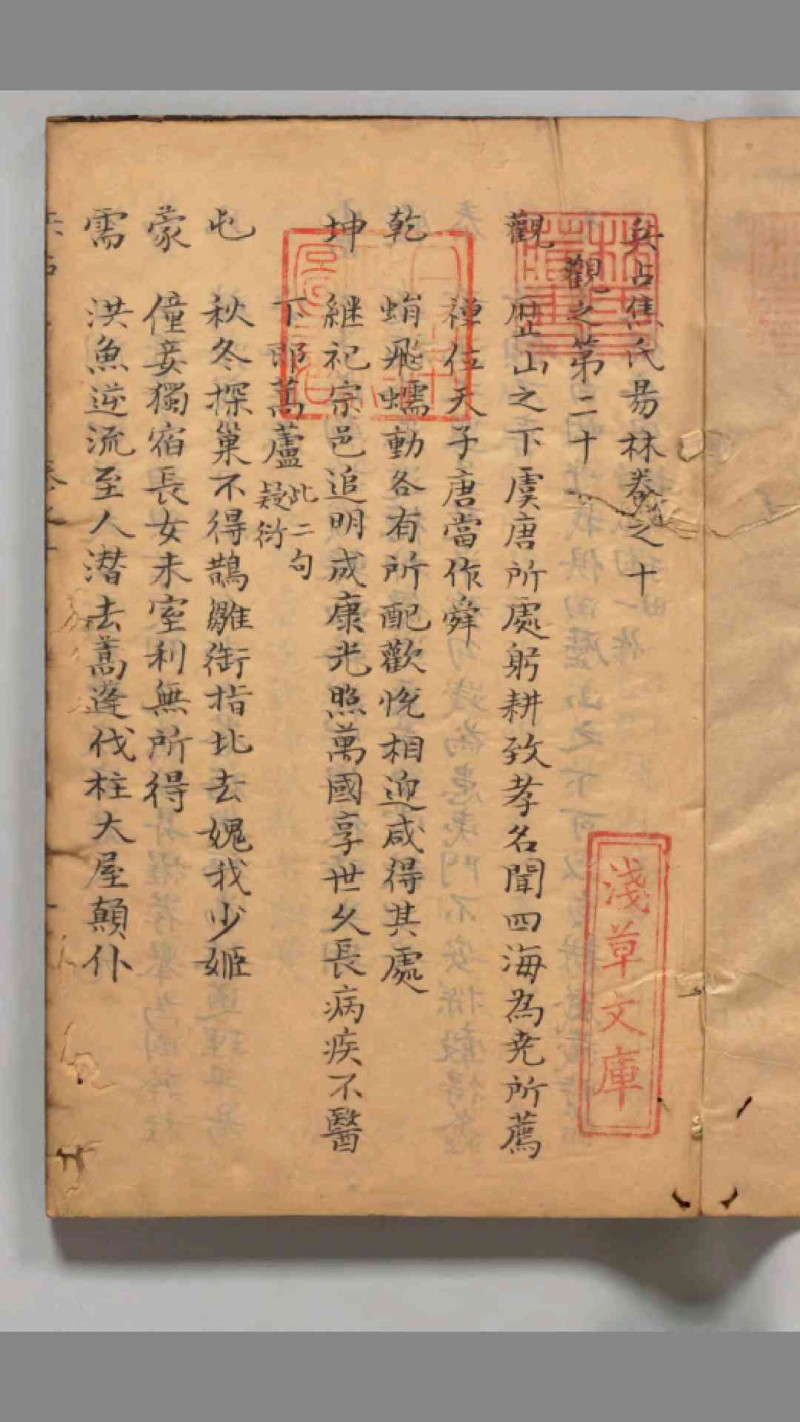 兵占焦氏易林卷之十
觀之第二十
觀 歷山之下虞唐所處躬耕致孝名聞四海為堯所薦
禪位天子唐當作舜
乾 蛸飛蠕動各有所配歡悅相迎咸得其處
坤 継祀宗邑追明成康光照萬國享世久長病疾不醫
下即蒿廬此二句疑衍
屯 秋冬探巢不得鵲雛銜指北去媿我少姬
蒙 僮妾獨宿長女未室利無所得
需 洪魚逆流至人潜去蒿蓬代柱大屋顛仆
淺草文庫